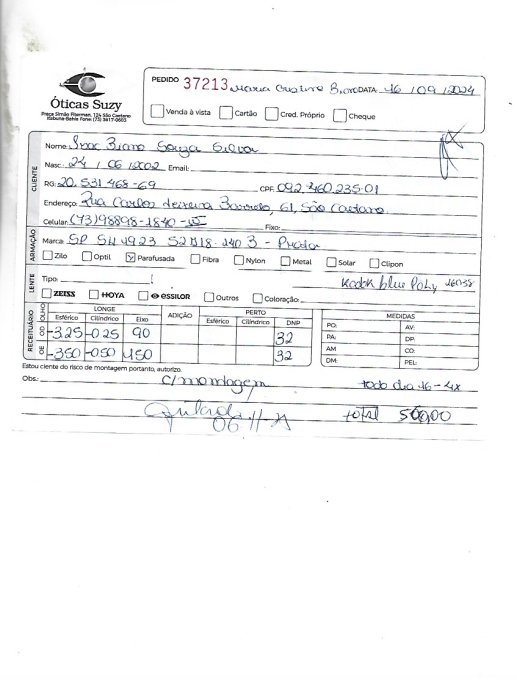 Óticas Suzy
Praça Simão Fiterman, 124 São Caetano
Itabuna-Bahia Fone: (73) 3617-0603
PEDIDO 37213 Maria DATA 16 / 09 / 2024
Venda à vista Cartão Créd. Próprio Cheque
CLIENTE
Nome: Souza Silva
Nasc. 24 / 06 / 2002 Email:
RG: 20.531.468-69 CPF: 092.460.235-01
Endereço: Rua Carlos Teixeira Barreto, 61, São Caetano
Celular: (73)98898-1840 Fixo:
ARMAÇÃO
Marca: SP SH4923 52 18 140 B - Prata
Zilo Optil Parafusada Fibra Nylon Metal Solar Clipon
LENTE
Tipo: Kodak blue Poly 16038
ZEISS HOYA essilor Outros Coloração:
RECEITUÁRIO
OLHO LONGE ADIÇÃO PERTO MEDIDAS
Esférico Cilíndrico Eixo Esférico Cilíndrico DNP
OD -325 -025 90 32
OE -350 -050 150 32
PO: AV:
PA: DP:
AM CO:
DM: PEL:
Estou cliente do risco de montagem portanto, autorizo.
Obs.: c/ montagem todo dia 16 - 4x
06 11 total 500,00